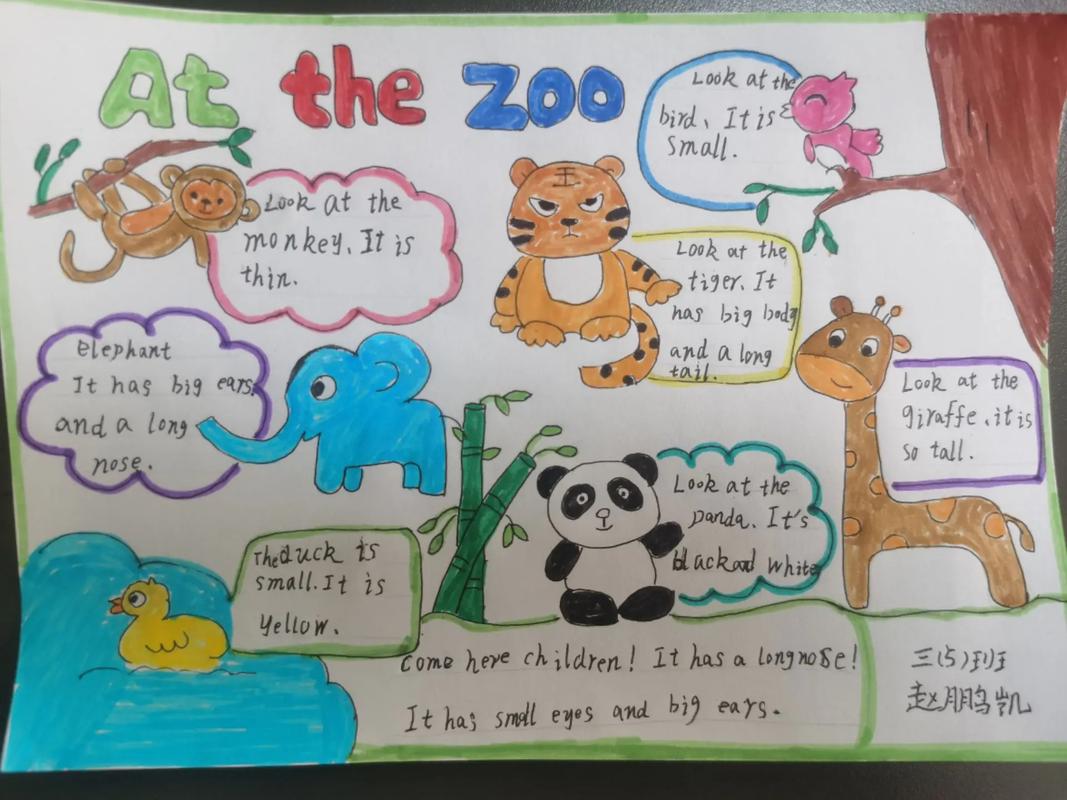 At the zoo
Look at the
bird、It is
small.
Look at the
monkey、It is
thin.
Look at the
tiger、It
has big body
and a long
tail.
elephant
It has big ears,
and a long
nose.
Look at the
giraffe、it is
so tall.
Look at the
panda、It's
black and white
The duck is
small. It is
yellow.
Come here children! It has a long nose!
It has small eyes and big ears.
三(5)班
赵鹏凯